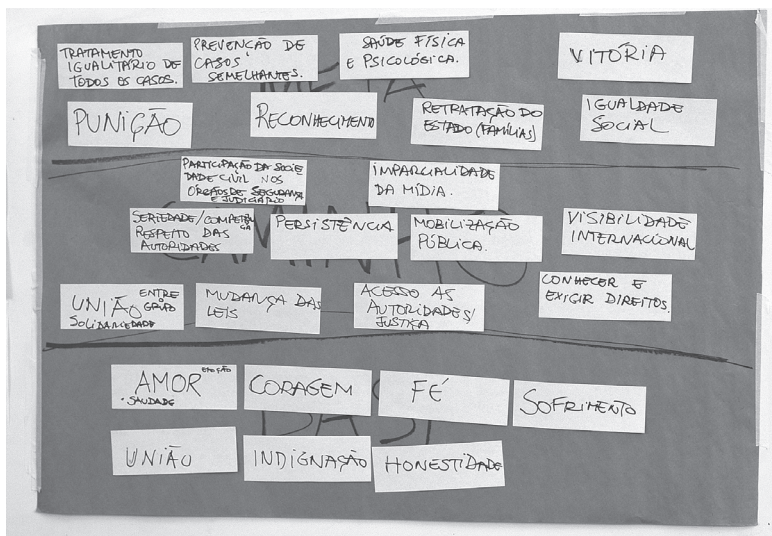 TRATAMENTO
IGUALITÁRIO DE
TODOS OS CASOS.
PREVENÇÃO DE
CASOS
SEMELHANTES.
SAÚDE FÍSICA
E PSICOLÓGICA.
VITÓRIA
META
PUNIÇÃO
RECONHECIMENTO
RETRATAÇÃO DO
ESTADO (FAMÍLIAS)
IGUALDADE
SOCIAL
PARTICIPAÇÃO DA SOCIE
DADE CIVIL NOS
ÓRGÃOS DE SEGURANÇA
E JUDICIÁRIO
IMPARCIALIDADE
DA MÍDIA.
SERIEDADE/COMPETÊN
CIA
RESPEITO DAS
AUTORIDADES
PERSISTÊNCIA
MOBILIZAÇÃO
PÚBLICA.
VISIBILIDADE
INTERNACIONAL
CAMINHO
UNIÃO ENTRE
O GRUPO
SOLIDARIEDADE
MUDANÇA DAS
LEIS
ACESSO AS
AUTORIDADES/
JUSTIÇA
CONHECER E
EXIGIR DIREITOS.
AMOR
EMOÇÃO
• SAUDADE
CORAGEM
FÉ
SOFRIMENTO
BASE
UNIÃO
INDIGNAÇÃO
HONESTIDADE